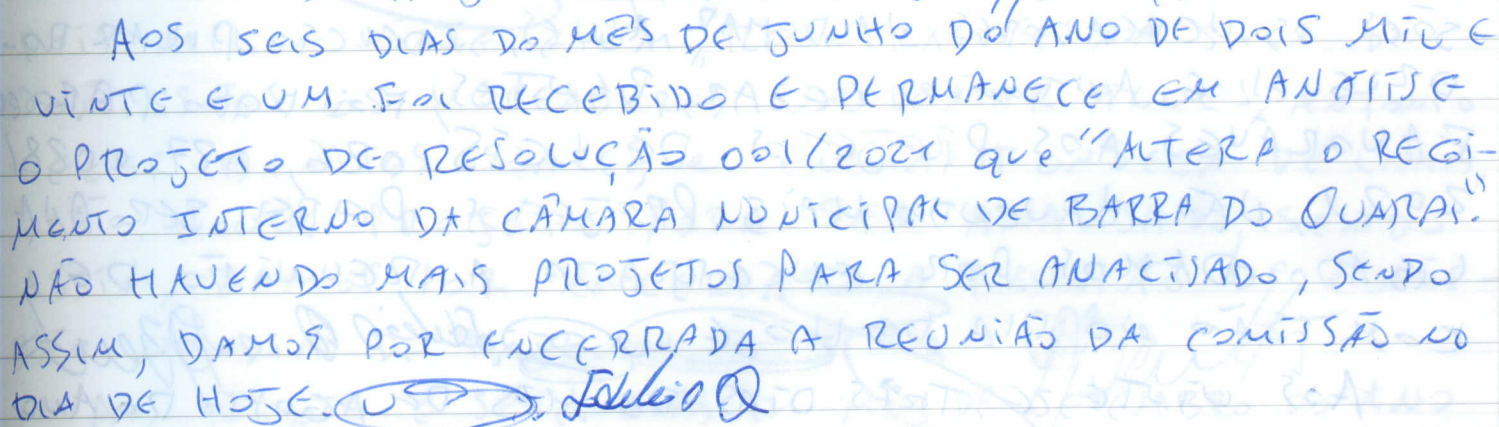 AOS SEIS DIAS DO MÊS DE JUNHO DO ANO DE DOIS MIL E
VINTE E UM FOI RECEBIDO E PERMANECE EM ANÁLISE
O PROJETO DE RESOLUÇÃO 001/2021 que "ALTERA O REGI-
MENTO INTERNO DA CÂMARA MUNICIPAL DE BARRA DO QUARAI."
NÃO HAVENDO MAIS PROJETOS PARA SER ANALISADO, SENDO
ASSIM, DAMOS POR ENCERRADA A REUNIÃO DA COMISSÃO NO
DIA DE HOJE.